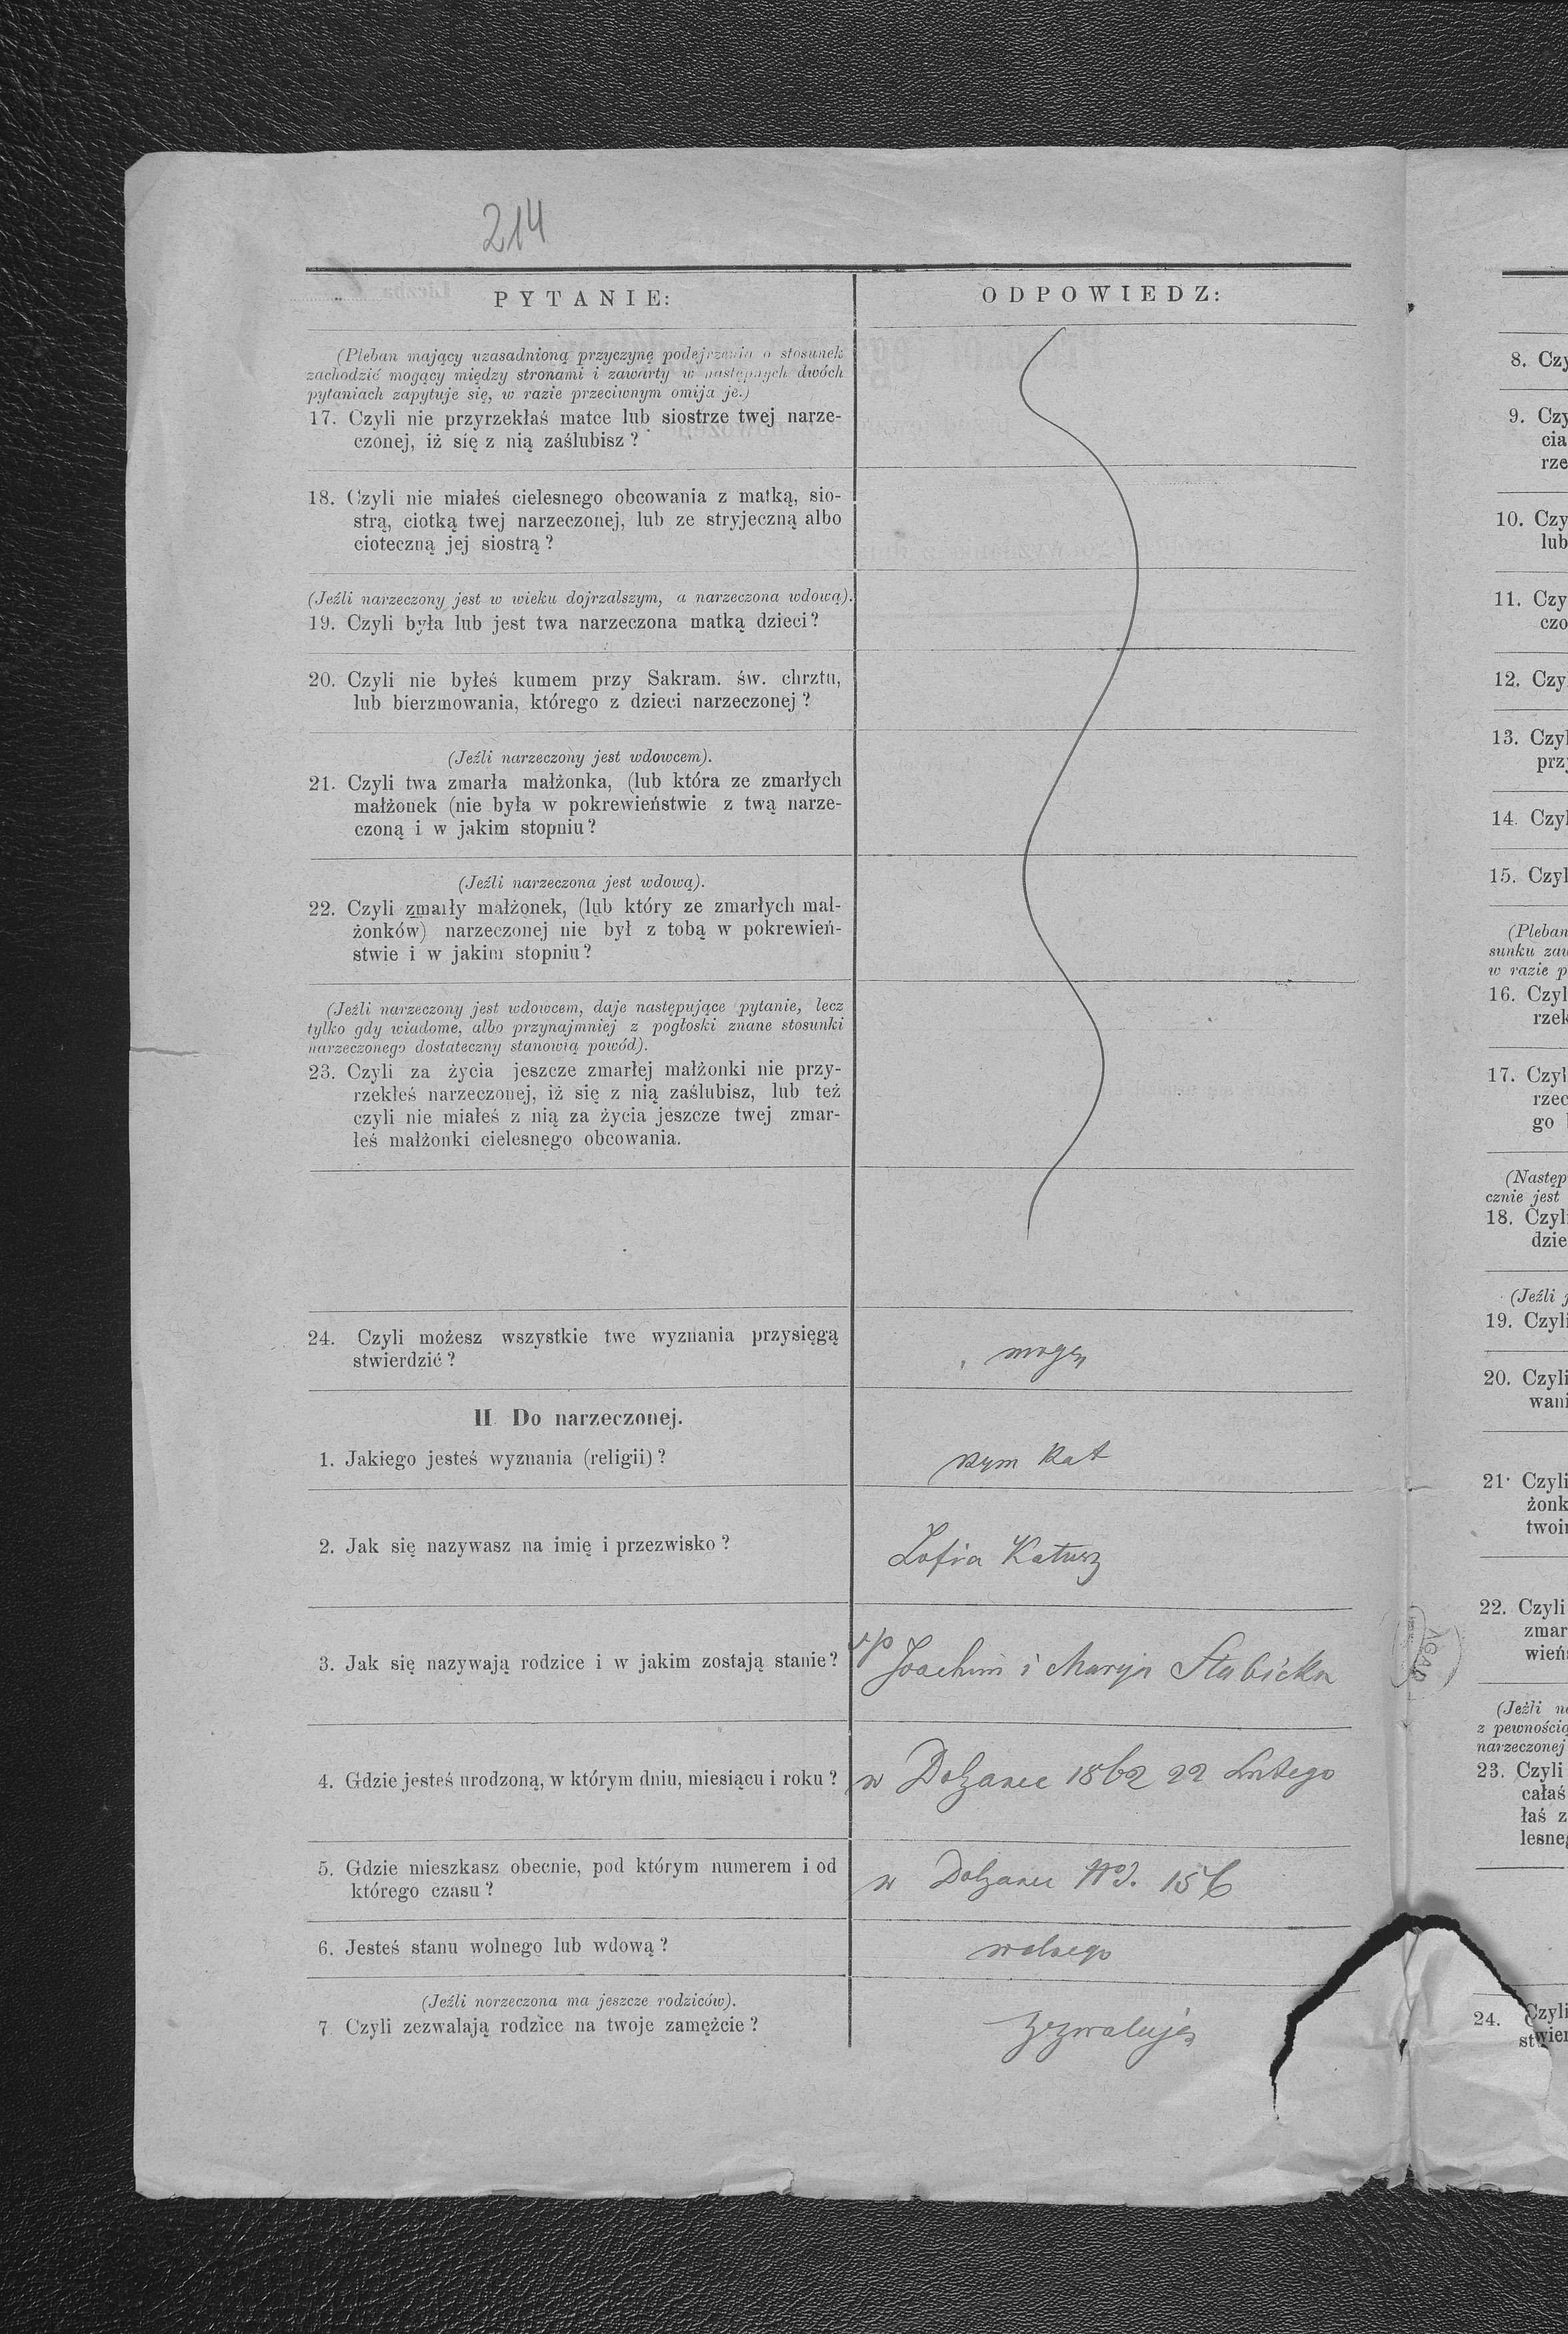 214
PYTANIE:
ODPOWIEDZ:
(Pleban mający uzasadnioną przyczynę podejrzenia o stosunek
zachodzić mogący między stronami i zawarty w następnych dwóch
pytaniach zapytuje się, w razie przeciwnym omija je.)
17. Czyli nie przyrzekłaś matce lub siostrze twej narze-
czonej, iż się z nią zaślubisz?
18. Czyli nie miałeś cielesnego obcowania z matką, sio-
strą, ciotką twej narzeczonej, lub ze stryjeczną albo
cioteczną jej siostrą?
(Jeźli narzeczony jest w wieku dojrzalszym, a narzeczona wdową).
19. Czyli była lub jest twa narzeczona matką dzieci?
20. Czyli nie byłeś kumem przy Sakram. św. chrztu,
lub bierzmowania, którego z dzieci narzeczonej?
(Jeźli narzeczony jest wdowcem).
21. Czyli twa zmarła małżonka, (lub która ze zmarłych
małżonek (nie była w pokrewieństwie z twą narze-
czoną i w jakim stopniu?
(Jeźli narzeczona jest wdową).
22. Czyli zmarły małżonek, (lub który ze zmarłych mał-
żonków) narzeczonej nie był z tobą w pokrewień-
stwie i w jakim stopniu?
(Jeźli narzeczony jest wdowcem, daje następujące pytanie, lecz
tylko gdy wiadome, albo przynajmniej z pogłoski znane stosunki
narzeczonego dostateczny stanowią powód).
23. Czyli za życia jeszcze zmarłej małżonki nie przy-
rzekłeś narzeczonej, iż się z nią zaślubisz, lub też
czyli nie miałeś z nią za życia jeszcze twej zmar-
łeś małżonki cielesnego obcowania.
24. Czyli możesz wszystkie twe wyznania przysięgą
stwierdzić?
mogę
II Do narzeczonej.
1. Jakiego jesteś wyznania (religii)?
rzym kat
2. Jak się nazywasz na imię i przezwisko?
Zofia Katurz
3. Jak się nazywają rodzice i w jakim zostają stanie?
Joachim i Marya Słabicka
4. Gdzie jesteś urodzoną, w którym dniu, miesiącu i roku?
w Dolzance 1862 22 Lutego
5. Gdzie mieszkasz obecnie, pod którym numerem i od
którego czasu?
w Dolzance 156
6. Jesteś stanu wolnego lub wdową?
wolnego
(Jeźli norzeczona ma jeszcze rodziców).
7 Czyli zezwalają rodzice na twoje zamęźcie?
zezwalają
8. Czy
9. Czy
cia
rze
10. Czy
lub
11. Czy
czo
12. Czy
13. Czyl
prz
14. Czyl
15. Czyl
(Pleban
sunku zaw
w razie p
16. Czyl
rzek
17. Czyl
rzec
go
(Następ
cznie jest
18. Czyli
dzie
(Jeźli
19. Czyli
20. Czyli
wani
21. Czyli
żonk
twoi
22. Czyli
zmar
wień
AGAD
(Jeźli n
z pewnością
narzeczonej
23. Czyli
całaś
łaś z
lesneg
24. Czyli
stwier